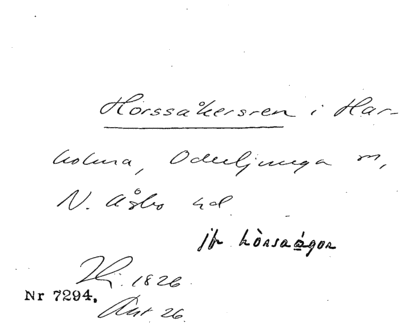 Hörssåkersren i Har-
holma, Oderljunga sn,
N. Åsbo hd.
jfr hörsaågor
1826
Nr 7294.
26